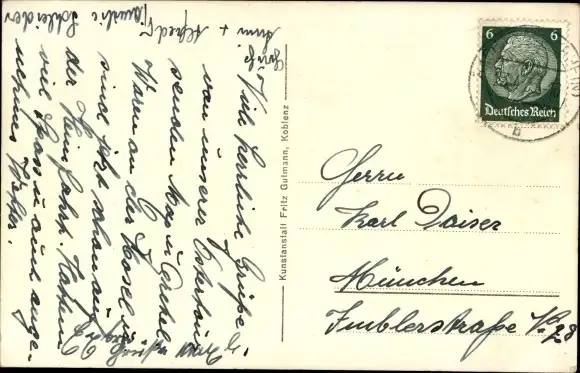 Viele herrliche Grüße
von unserer Ostertour
senden Max u. Gretel
Waren an der Mosel u.
sind jetzt schon auf
der Heimfahrt. Hatten
viel Spass u. auch ange-
nehmes Wetter.
Gruß
Kunstanstalt Fritz Gutmann, Koblenz
6 6
Deutsches Reich
b
Herrn
Karl Daiser
München
Imblerstraße